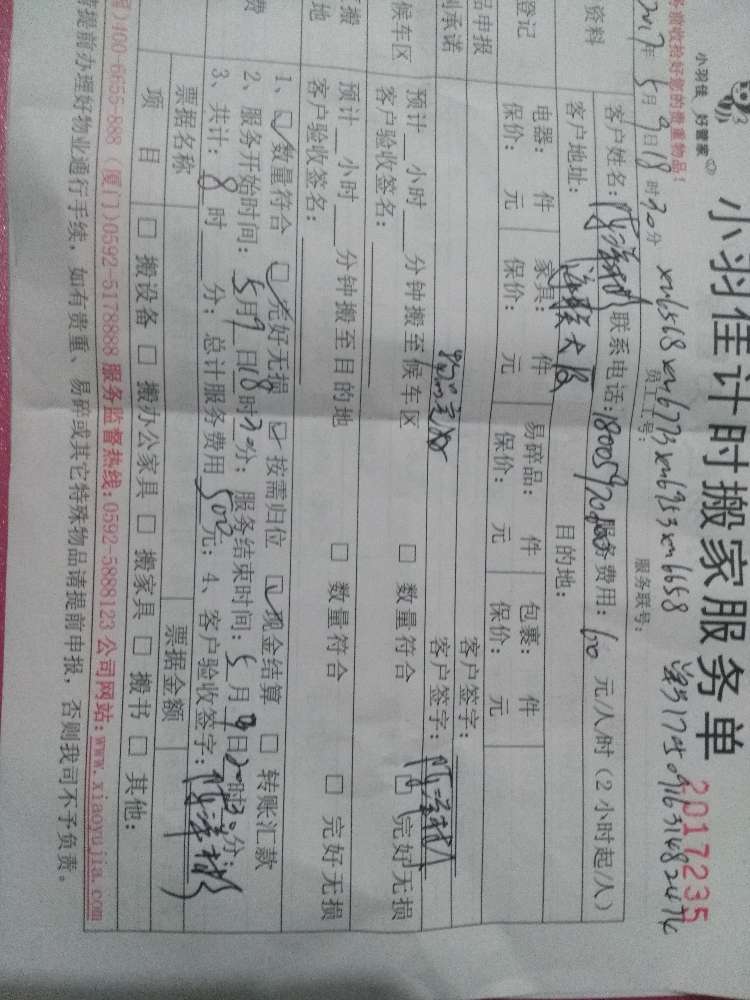 小羽佳 好管家
小羽佳计时搬家服务单
2017235
务前收拾好您的贵重物品!
员工工号:
服务联号:
xm6568 xm6773 xm6953 xm6658
2017年5月9日18时30分
资料
客户姓名:
联系电话:
服务费用:60元/人时(2小时起/人)
客户地址:
目的地:
登记
电器: 件
家具: 件
易碎品: 件
包裹: 件
保价: 元
保价: 元
保价: 元
保价: 元
品申报
客户签字:
承诺
客户签字:
候车区
预计__小时__分钟搬至候车区
□ 数量符合
□ 完好无损
客户验收签名:
搬
地
预计__小时__分钟搬至目的地
□ 数量符合
□ 完好无损
客户验收签名:
费
1、☑数量符合 ☑完好无损 ☑按需归位 ☑现金结算 □ 转账汇款
2、服务开始时间:5月9日18时30分;服务结束时间:5月9日20时30分;
3、共计:8时__分;总计服务费用500元;4、客户验收签字:
票据名称
票据金额
项 目
□ 搬设备 □ 搬办公家具 □ 搬家具 □ 搬书 □ 其他:
)400-6655-888 (厦门)0592-5178888 服务监督热线:0592-5888123 公司网站:www.xiaoyujia.com
请提前办理好物业通行手续,如有贵重、易碎或其它特殊物品请提前申报,否则我司不予负责。